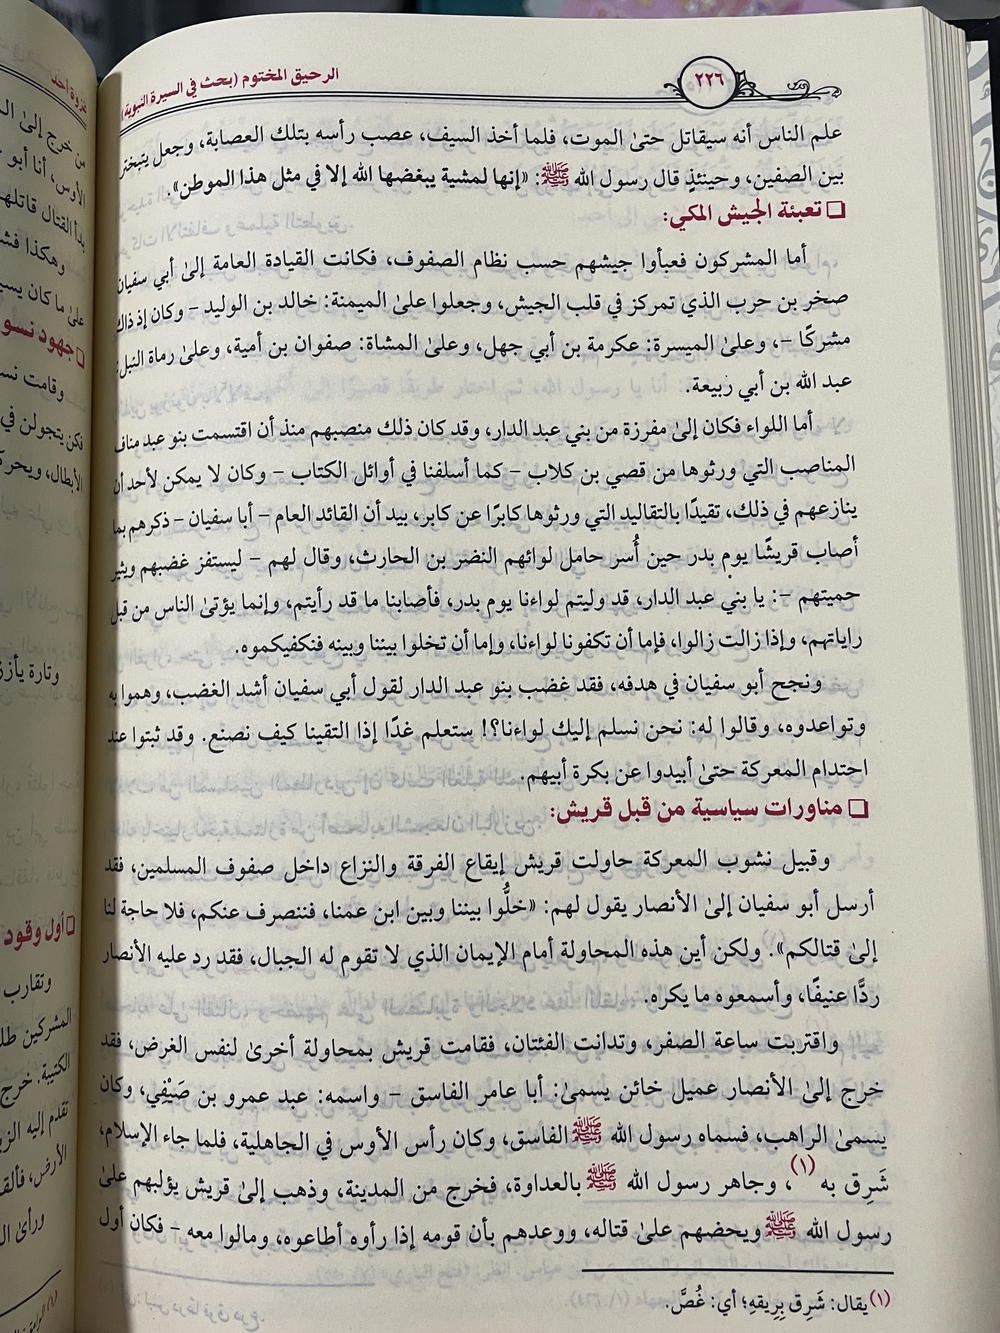 ٢٢٦
الرحيق المختوم (بحث في السيرة النبوية)
علم الناس أنه سيقاتل حتىٰ الموت، فلما أخذ السيف، عصب رأسه بتلك العصابة، وجعل يتبختر
بين الصفين، وحينئذٍ قال رسول الله ﷺ: «إنها لمشية يبغضها الله إلا في مثل هذا الموطن».
❑ تعبئة الجيش المكي:
أما المشركون فعبأوا جيشهم حسب نظام الصفوف، فكانت القيادة العامة إلىٰ أبي سفيان
صخر بن حرب الذي تمركز في قلب الجيش، وجعلوا علىٰ الميمنة: خالد بن الوليد – وكان إذ ذاك
مشركًا –، وعلىٰ الميسرة: عكرمة بن أبي جهل، وعلىٰ المشاة: صفوان بن أمية، وعلىٰ رماة النبل:
عبد الله بن أبي ربيعة.
أما اللواء فكان إلىٰ مفرزة من بني عبد الدار، وقد كان ذلك منصبهم منذ أن اقتسمت بنو عبد مناف
المناصب التي ورثوها من قصي بن كلاب – كما أسلفنا في أوائل الكتاب – وكان لا يمكن لأحد أن
ينازعهم في ذلك، تقيدًا بالتقاليد التي ورثوها كابرًا عن كابر، بيد أن القائد العام – أبا سفيان – ذكرهم بما
أصاب قريشًا يوم بدر حين أُسر حامل لوائهم النضر بن الحارث، وقال لهم – ليستفز غضبهم ويثير
حميتهم –: يا بني عبد الدار، قد وليتم لواءنا يوم بدر، فأصابنا ما قد رأيتم، وإنما يؤتىٰ الناس من قبل
راياتهم، وإذا زالت زالوا، فإما أن تكفونا لواءنا، وإما أن تخلوا بيننا وبينه فنكفيكموه.
ونجح أبو سفيان في هدفه، فقد غضب بنو عبد الدار لقول أبي سفيان أشد الغضب، وهموا به
وتواعدوه، وقالوا له: نحن نسلم إليك لواءنا؟! ستعلم غدًا إذا التقينا كيف نصنع. وقد ثبتوا عند
احتدام المعركة حتىٰ أبيدوا عن بكرة أبيهم.
❑ مناورات سياسية من قبل قريش:
وقبيل نشوب المعركة حاولت قريش إيقاع الفرقة والنزاع داخل صفوف المسلمين، فقد
أرسل أبو سفيان إلىٰ الأنصار يقول لهم: «خلُّوا بيننا وبين ابن عمنا، فننصرف عنكم، فلا حاجة لنا
إلىٰ قتالكم». ولكن أين هذه المحاولة أمام الإيمان الذي لا تقوم له الجبال، فقد رد عليه الأنصار
ردًّا عنيفًا، وأسمعوه ما يكره.
واقتربت ساعة الصفر، وتدانت الفئتان، فقامت قريش بمحاولة أخرىٰ لنفس الغرض، فقد
خرج إلىٰ الأنصار عميل خائن يسمىٰ: أبا عامر الفاسق – واسمه: عبد عمرو بن صَيْفِي، وكان
يسمىٰ الراهب، فسماه رسول الله ﷺ الفاسق، وكان رأس الأوس في الجاهلية، فلما جاء الإسلام،
شَرِق به(١)، وجاهر رسول الله ﷺ بالعداوة، فخرج من المدينة، وذهب إلىٰ قريش يؤلبهم علىٰ
رسول الله ﷺ ويحضهم علىٰ قتاله، ووعدهم بأن قومه إذا رأوه أطاعوه، ومالوا معه – فكان أول
(١) يقال: شَرِق بِرِيقهِ؛ أي: غُصَّ.
غزوة أحد
من خرج إلىٰ
الأوس، أنا أبو
بدأ القتال قاتلهم
وهكذا
علىٰ ما كان
❑ جهود
وقامت
فكن يتجولن في
الأبطال،
وتارة
❑ أول وقود
وتقارب
المشركين
الكتيبة. خرج
تقدم إليه
الأرض،
ورأىٰ